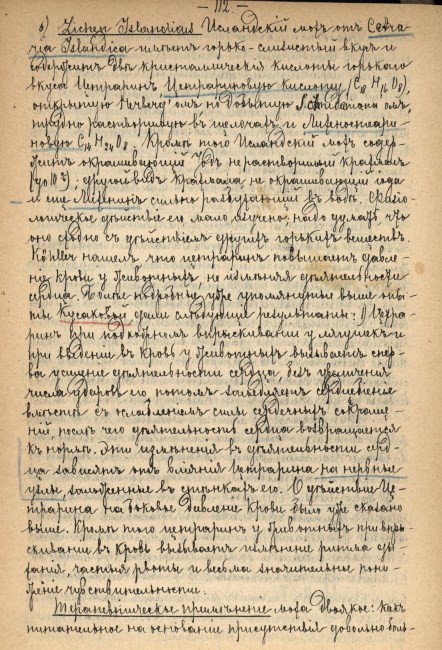 — 112 —
б) Lichen Islandicus Исландскій мохъ отъ Cetra-
ria Islandica имѣетъ горько-слизистый вкусъ и
содержитъ двѣ кристаллическія кислоты горькаго
вкуса Цетраринъ, Цетраровую кислоту (C18 H16 O8),
открытую и добытую
трудно растворимую въ щелочахъ и Лихностеари-
новую C14 H24 O3. Кромѣ того Исландскій мохъ содер-
житъ окрашивающій Іодъ не растворимый крахмалъ
другой видъ крахмала не окрашивающій іода
и еще Лихенинъ сильно разбухающій въ водѣ. Физіо-
логическое дѣйствіе его мало изучено; надо думать что
оно сходно съ дѣйствіемъ другихъ горькихъ веществъ.
Köhler нашелъ что цетраринъ повышаетъ давле-
ніе крови у животныхъ, не измѣняя дѣятельности
сердца. Болѣе подробные, уже упомянутые выше опы-
ты Кусакова дали слѣдующіе результаты: 1) Цетра-
ринъ при подкожномъ впрыскиваніи у лягушекъ и
при введеніи въ кровь у животныхъ вызываетъ снер-
ва усиленіе дѣятельности сердца, безъ увеличенія
числа ударовъ его, потомъ замедляетъ сердцебіеніе
вмѣстѣ съ ослабленіемъ силы сердечныхъ сокраще-
ній, послѣ чего дѣятельность сердца возвращается
къ нормѣ. Эти измѣненія въ дѣятельности серд-
ца зависятъ отъ вліянія Цетрарина на нервные
узлы, заложенные въ стѣнкахъ его. О дѣйствіи Це-
трарина на боковое давленіе крови было уже сказано
выше. Кромѣ того цетраринъ у животныхъ при впры-
скиваніи въ кровь вызываетъ измѣненіе ритма ды-
ханія, частыя рвоты и весьма значительное пони-
женіе чувствительности.
Терапевтическое примѣненіе моха двоякое: какъ
питательное на основаніи присутствія довольно боль-